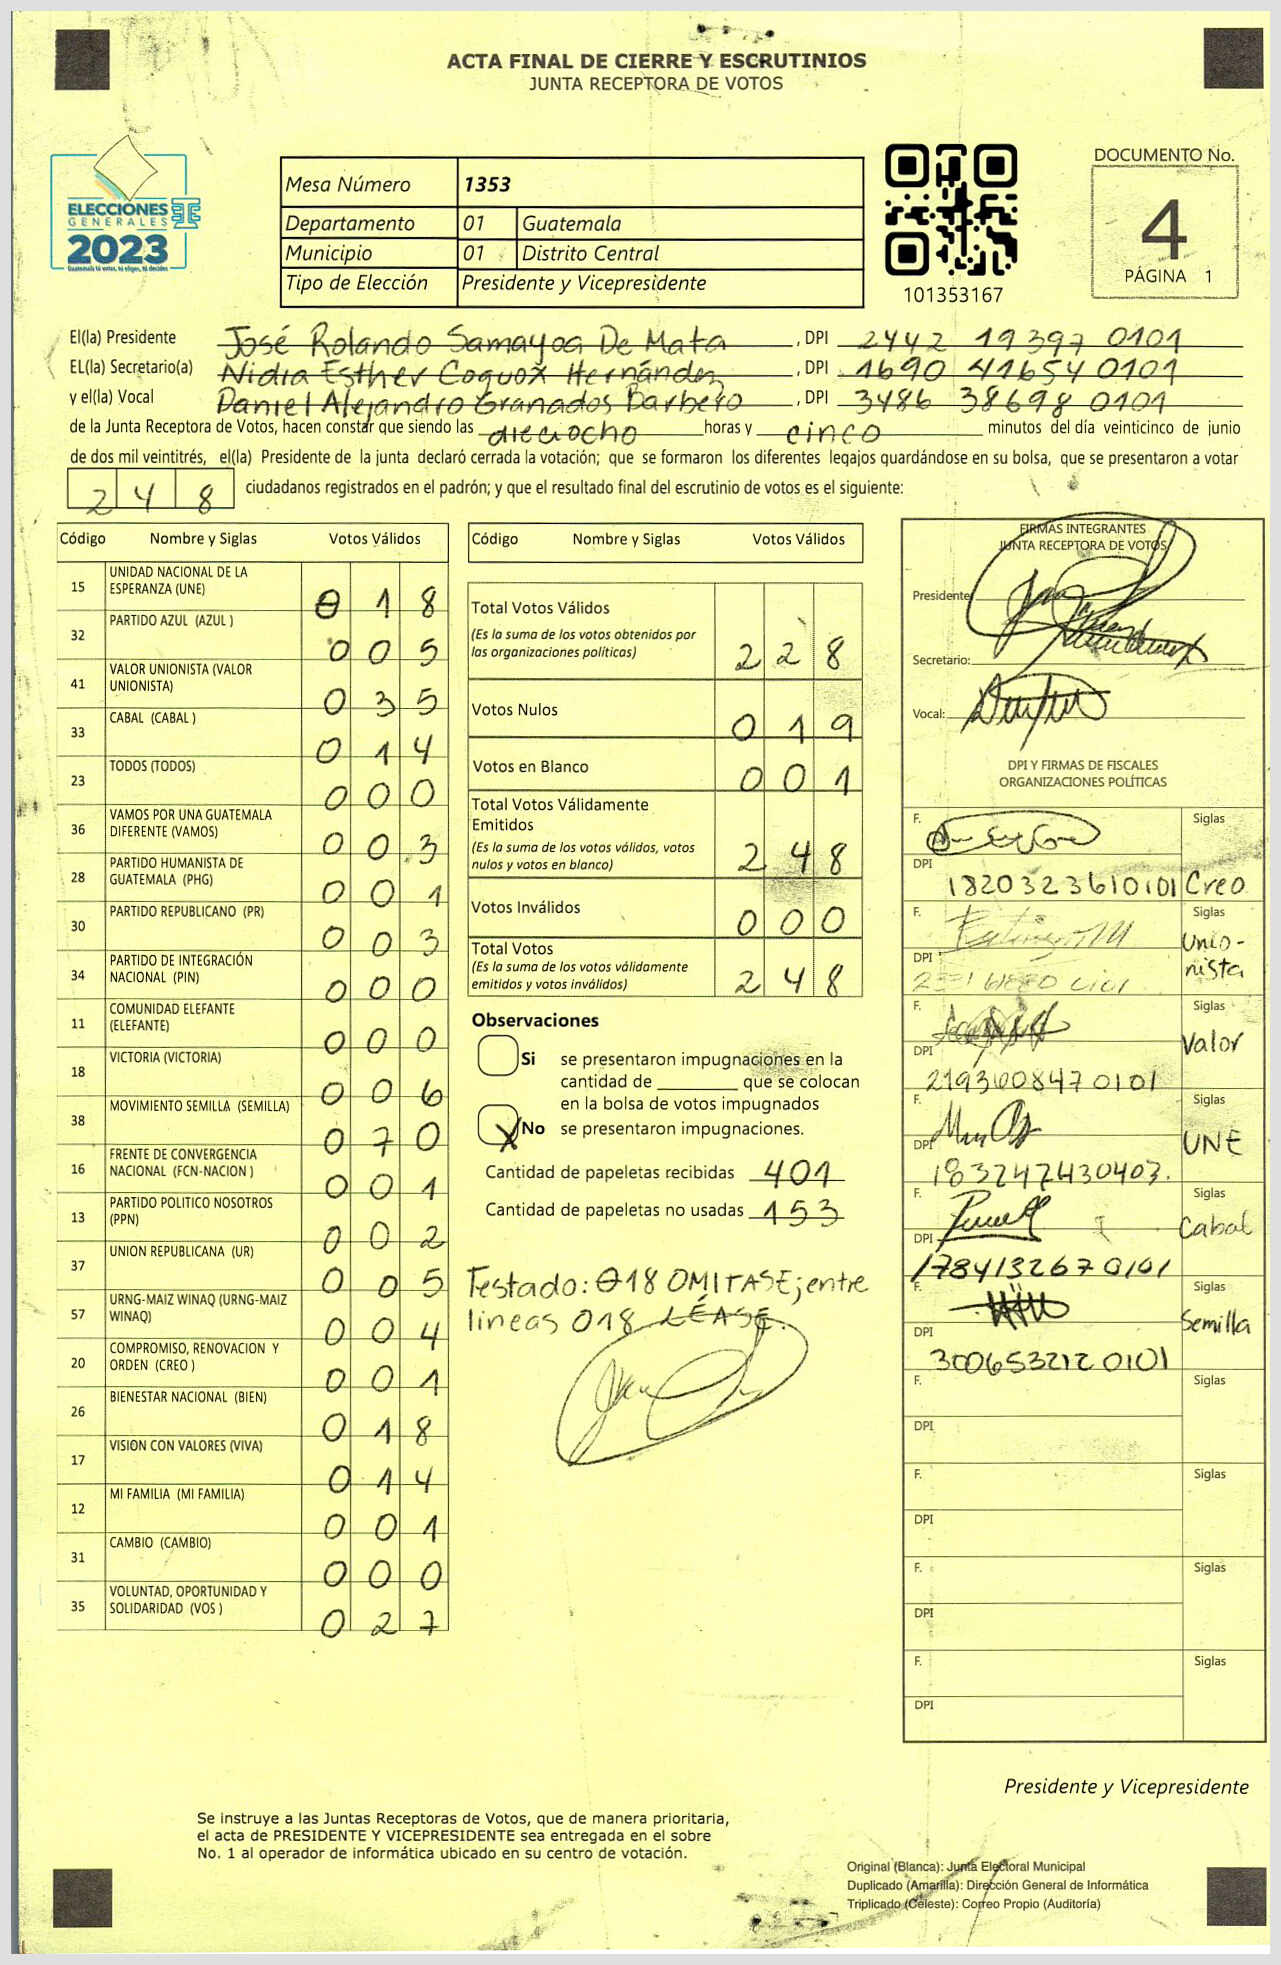 ACTA FINAL DE CIERRE Y ESCRUTINIOS
JUNTA RECEPTORA DE VOTOS
ELECCIONES
GENERALES
2023
Guatemala tú votas, tú eliges, tú decides
Mesa Número 1353
Departamento 01 Guatemala
Municipio 01 Distrito Central
Tipo de Elección Presidente y Vicepresidente
101353167
DOCUMENTO No.
4
PÁGINA 1
El(la) Presidente José Rolando Samayoa De Mata, DPI 2442 19397 0101
EL(la) Secretario(a) Nidia Esther Coquox Hernández, DPI 1690 41654 0101
y el(la) Vocal Daniel Alejandro Granados Barbero, DPI 3486 38698 0101
de la Junta Receptora de Votos, hacen constar que siendo las dieciocho horas y cinco minutos del día veinticinco de junio
de dos mil veintitrés, el(la) Presidente de la junta declaró cerrada la votación; que se formaron los diferentes legajos guardándose en su bolsa, que se presentaron a votar
248 ciudadanos registrados en el padrón; y que el resultado final del escrutinio de votos es el siguiente:
Código Nombre y Siglas Votos Válidos
15 UNIDAD NACIONAL DE LA ESPERANZA (UNE) 018
32 PARTIDO AZUL (AZUL ) 005
41 VALOR UNIONISTA (VALOR UNIONISTA) 035
33 CABAL (CABAL ) 014
23 TODOS (TODOS) 000
36 VAMOS POR UNA GUATEMALA DIFERENTE (VAMOS) 003
28 PARTIDO HUMANISTA DE GUATEMALA (PHG) 001
30 PARTIDO REPUBLICANO (PR) 003
34 PARTIDO DE INTEGRACIÓN NACIONAL (PIN) 000
11 COMUNIDAD ELEFANTE (ELEFANTE) 000
18 VICTORIA (VICTORIA) 006
38 MOVIMIENTO SEMILLA (SEMILLA) 070
16 FRENTE DE CONVERGENCIA NACIONAL (FCN-NACION ) 001
13 PARTIDO POLITICO NOSOTROS (PPN) 002
37 UNION REPUBLICANA (UR) 005
57 URNG-MAIZ WINAQ (URNG-MAIZ WINAQ) 004
20 COMPROMISO, RENOVACION Y ORDEN (CREO ) 001
26 BIENESTAR NACIONAL (BIEN) 018
17 VISION CON VALORES (VIVA) 014
12 MI FAMILIA (MI FAMILIA) 001
31 CAMBIO (CAMBIO) 000
35 VOLUNTAD, OPORTUNIDAD Y SOLIDARIDAD (VOS ) 027
Código Nombre y Siglas Votos Válidos
Total Votos Válidos 228
(Es la suma de los votos obtenidos por
las organizaciones políticas)
Votos Nulos 019
Votos en Blanco 001
Total Votos Válidamente
Emitidos 248
(Es la suma de los votos válidos, votos
nulos y votos en blanco)
Votos Inválidos 000
Total Votos 248
(Es la suma de los votos válidamente
emitidos y votos inválidos)
Observaciones
Si se presentaron impugnaciones en la
cantidad de ________ que se colocan
en la bolsa de votos impugnados
X No se presentaron impugnaciones.
Cantidad de papeletas recibidas 401
Cantidad de papeletas no usadas 153
Testado: 018 OMITASE; entre
lineas 018 LÉASE.
FIRMAS INTEGRANTES
JUNTA RECEPTORA DE VOTOS
Presidente:
Secretario:
Vocal:
DPI Y FIRMAS DE FISCALES
ORGANIZACIONES POLÍTICAS
F. Siglas
DPI 1820323610101 Creo
F. Siglas
DPI Unio-
nista
F. Siglas
DPI Valor
2193008470101
F. Siglas
DPI UNE
183247430403.
F. Siglas
DPI Cabal
1784132670101
F. Siglas
DPI Semilla
3006532120101
F. Siglas
DPI
F. Siglas
DPI
F. Siglas
DPI
F. Siglas
DPI
Presidente y Vicepresidente
Se instruye a las Juntas Receptoras de Votos, que de manera prioritaria,
el acta de PRESIDENTE Y VICEPRESIDENTE sea entregada en el sobre
No. 1 al operador de informática ubicado en su centro de votación.
Original (Blanca): Junta Electoral Municipal
Duplicado (Amarilla): Dirección General de Informática
Triplicado (Celeste): Correo Propio (Auditoría)